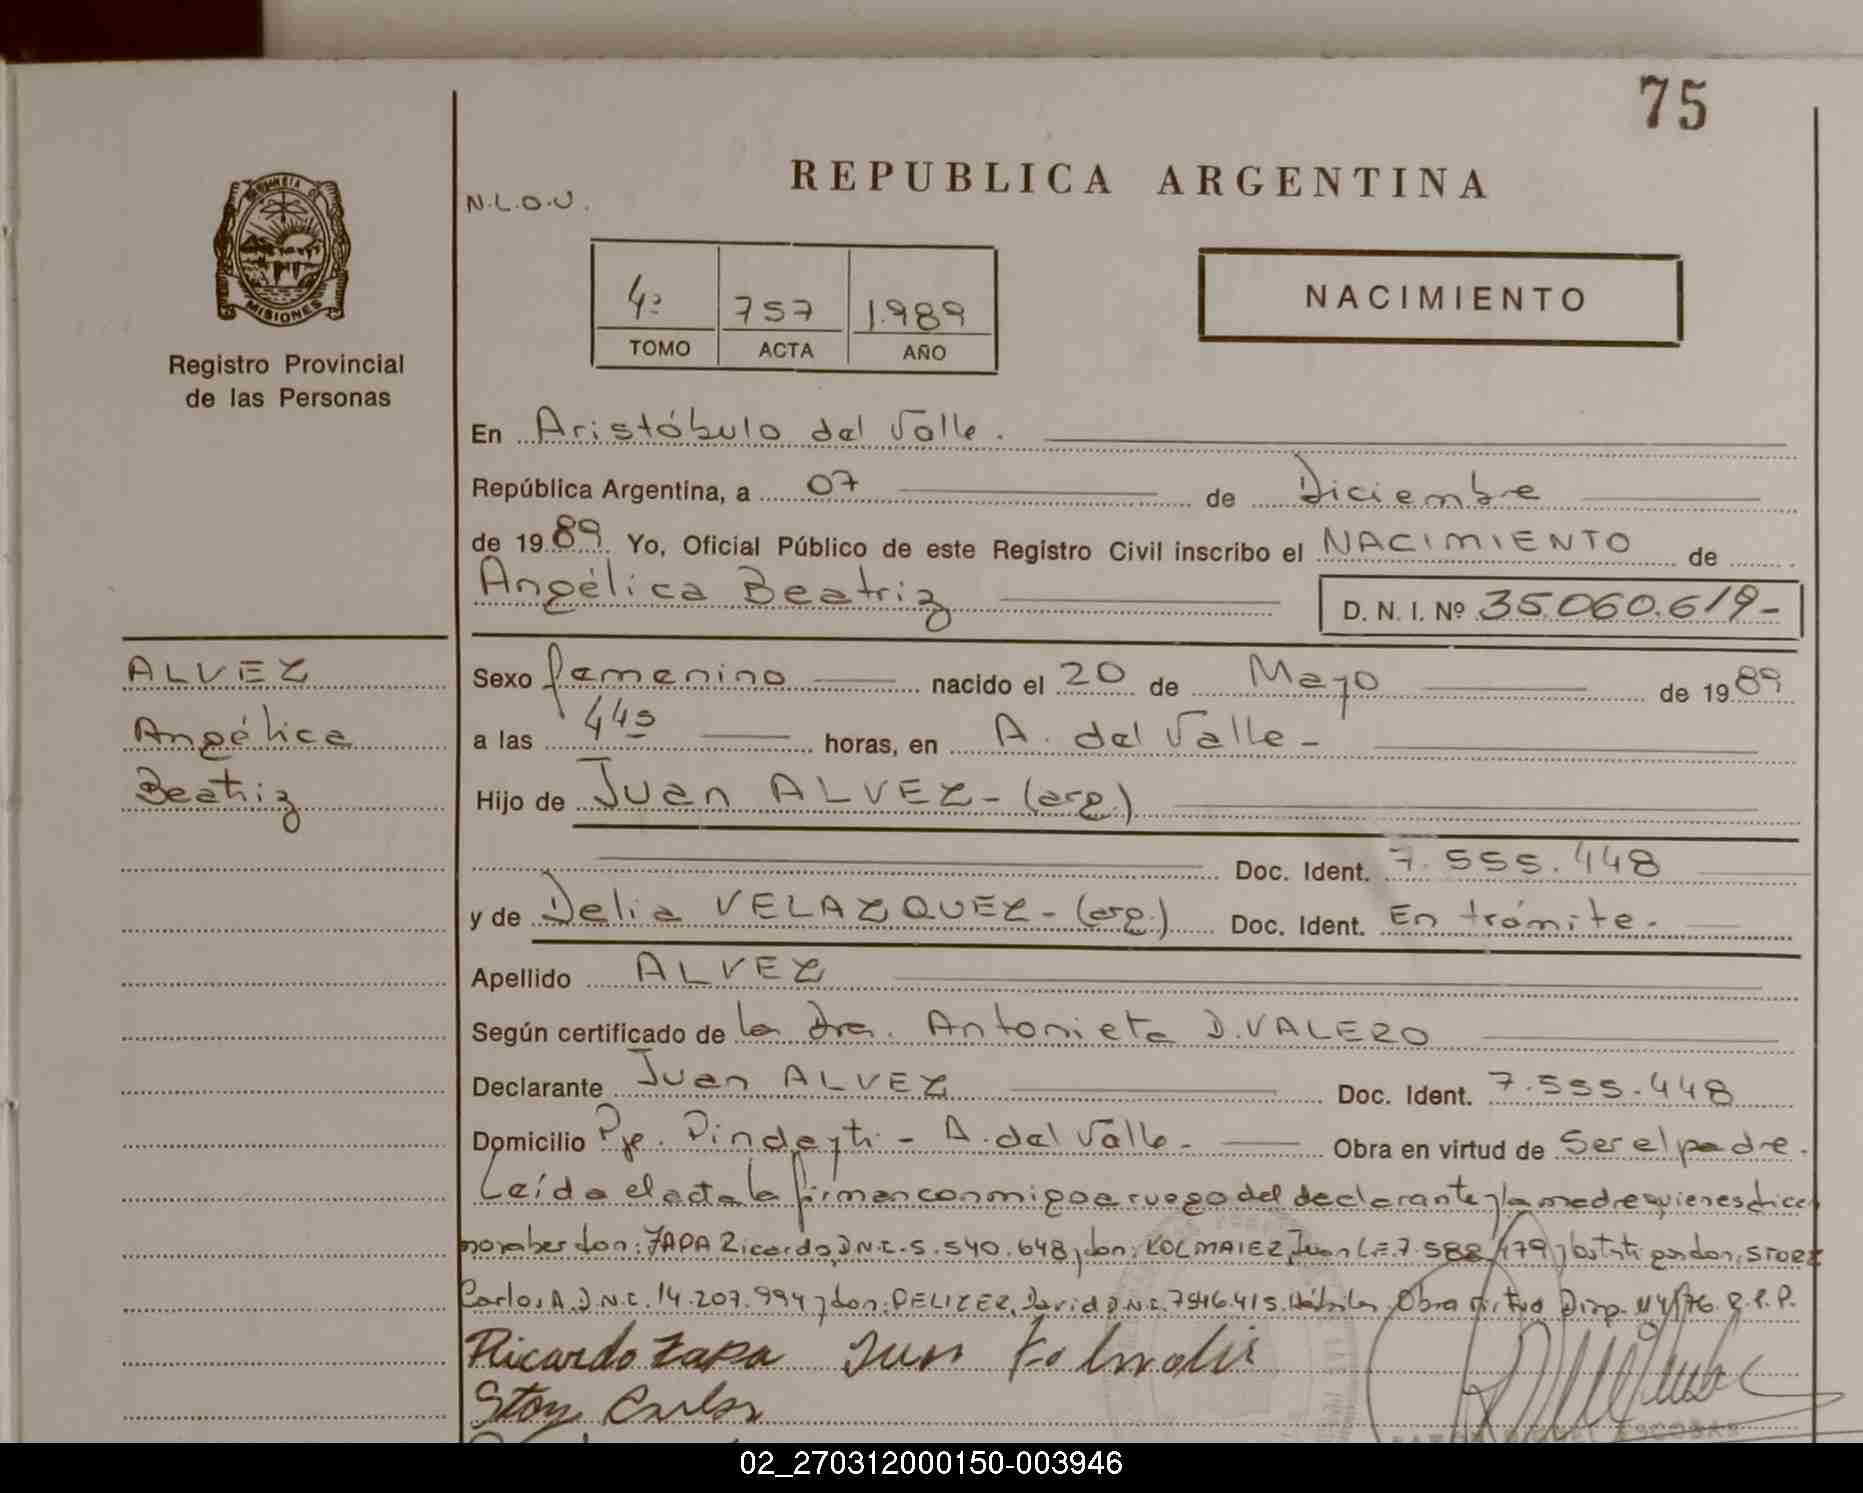 75
REPUBLICA ARGENTINA
N.L.O.U.
MISIONES
Registro Provincial
de las Personas
4º 757 1.989
TOMO ACTA AÑO
NACIMIENTO
En Aristóbulo del Valle.
República Argentina, a 07 de Diciembre
de 1989. Yo, Oficial Público de este Registro Civil inscribo el NACIMIENTO de
Angélica Beatriz D. N. I. Nº 35.060.619-
ALVEZ
Angélica
Beatriz
Sexo femenino nacido el 20 de Mayo de 1989
a las 445 horas, en A. del Valle-
Hijo de Juan ALVEZ- (arg.)
Doc. Ident. 7.555.448
y de Delia VELAZQUEZ- (arg.) Doc. Ident. En trámite.
Apellido ALVEZ
Según certificado de la Dra. Antonieta D. VALERO
Declarante Juan ALVEZ Doc. Ident. 7.555.448
Domicilio Pje. Pindayti- A. del Valle- Obra en virtud de Ser el padre.
Leída el acta la firman conmigo a ruego del declarante y la madre quienes dicen
no saber don: ZAPA Ricardo, D.N.I. 5.540.648 y don: KOLMAIER, Juan L.E. 7.588.179 y los testigos don, STORZ
Carlos A. D.N.I. 14.207.994 y don: PELIZER, David D.N.I. 7546.415. Hábiles, Obra Disp. 114/76. R.P.P.
Ricardo Zapa Juan
Carlos
02_270312000150-003946